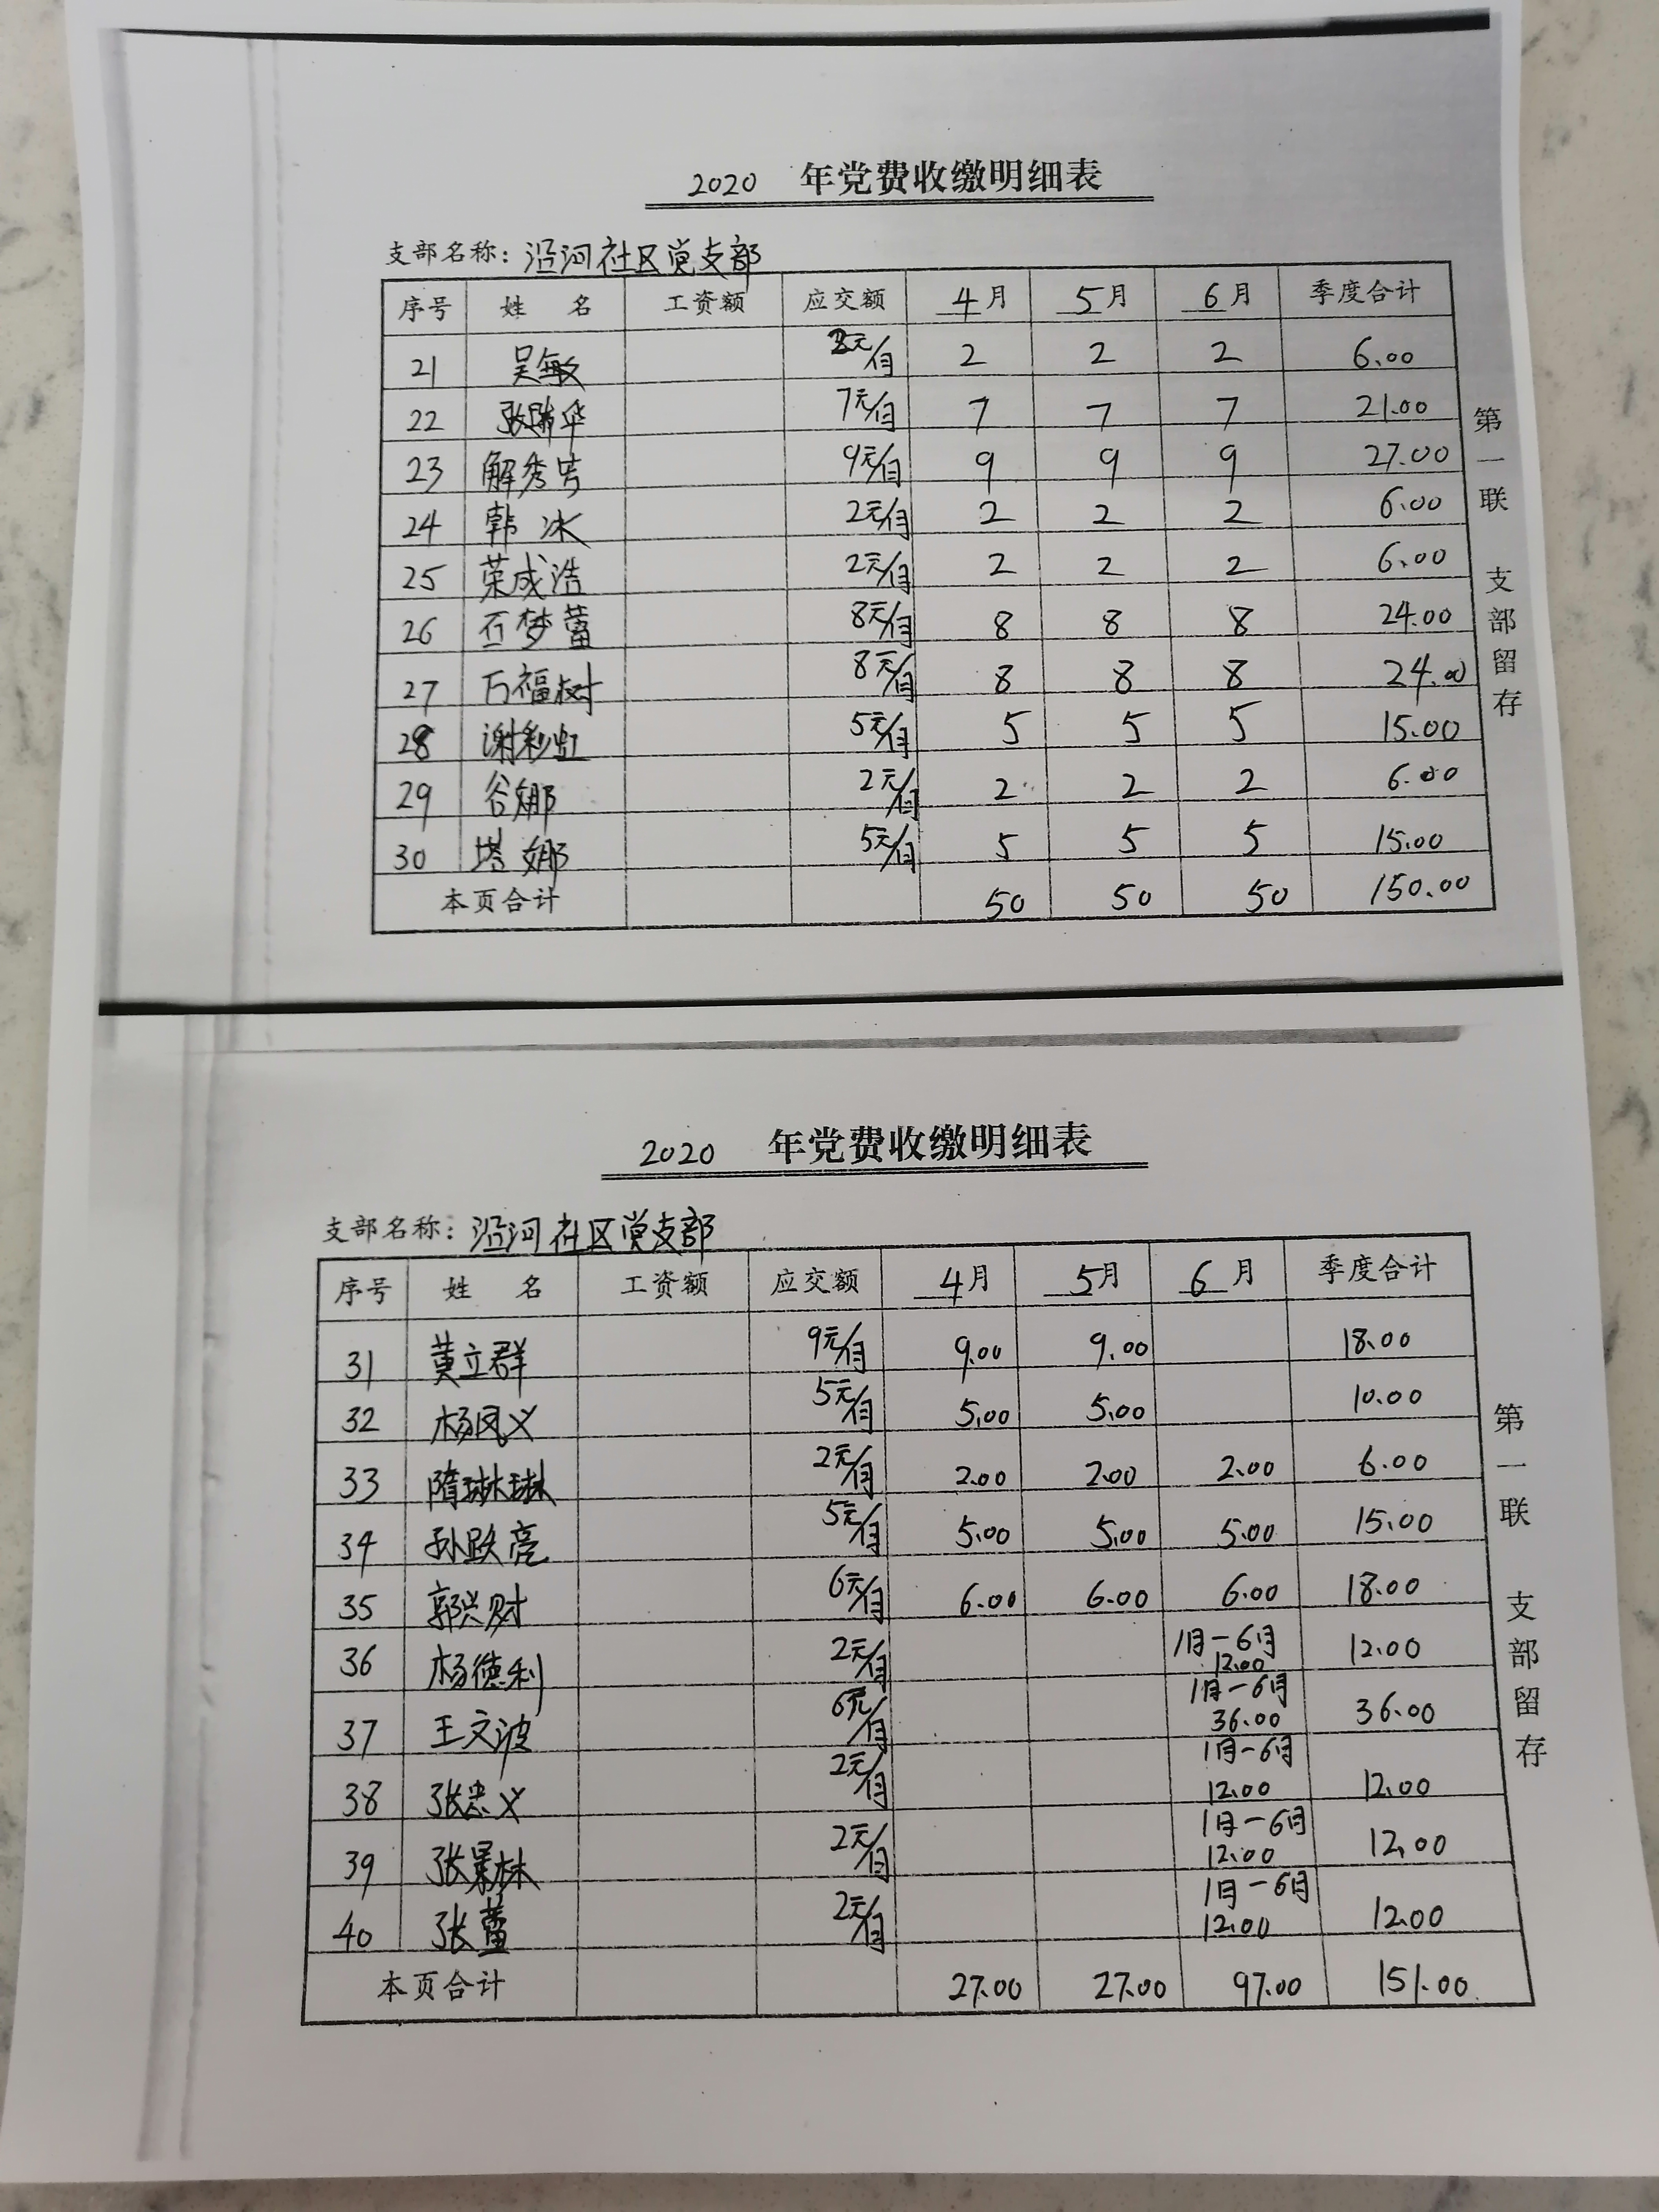 2020 年党费收缴明细表
支部名称：沿河社区党支部
序号 姓 名 工资额 应交额 4月 5月 6月 季度合计
21 吴敏 2元/月 2 2 2 6.00
22 张瑞华 7元/月 7 7 7 21.00
23 解秀 9元/月 9 9 9 27.00
24 韩冰 2元/月 2 2 2 6.00
25 荣成浩 2元/月 2 2 2 6.00
26 石梦蕾 8元/月 8 8 8 24.00
27 万福树 8元/月 8 8 8 24.00
28 谢彩虹 5元/月 5 5 5 15.00
29 谷娜 2元/月 2 2 2 6.00
30 塔娜 5元/月 5 5 5 15.00
本页合计 50 50 50 150.00
第一联 支部留存
2020 年党费收缴明细表
支部名称：沿河社区党支部
序号 姓 名 工资额 应交额 4月 5月 6月 季度合计
31 黄立群 9元/月 9.00 9.00 18.00
32 杨凤义 5元/月 5.00 5.00 10.00
33 隋琳琳 2元/月 2.00 2.00 2.00 6.00
34 孙跃亮 5元/月 5.00 5.00 5.00 15.00
35 郭兴财 6元/月 6.00 6.00 6.00 18.00
36 杨德利 2元/月 1月-6月 12.00 12.00
37 王文波 6元/月 1月-6月 36.00 36.00
38 张忠义 2元/月 1月-6月 12.00 12.00
39 张景林 2元/月 1月-6月 12.00 12.00
40 张蕾 2元/月 1月-6月 12.00 12.00
本页合计 27.00 27.00 97.00 151.00
第一联 支部留存